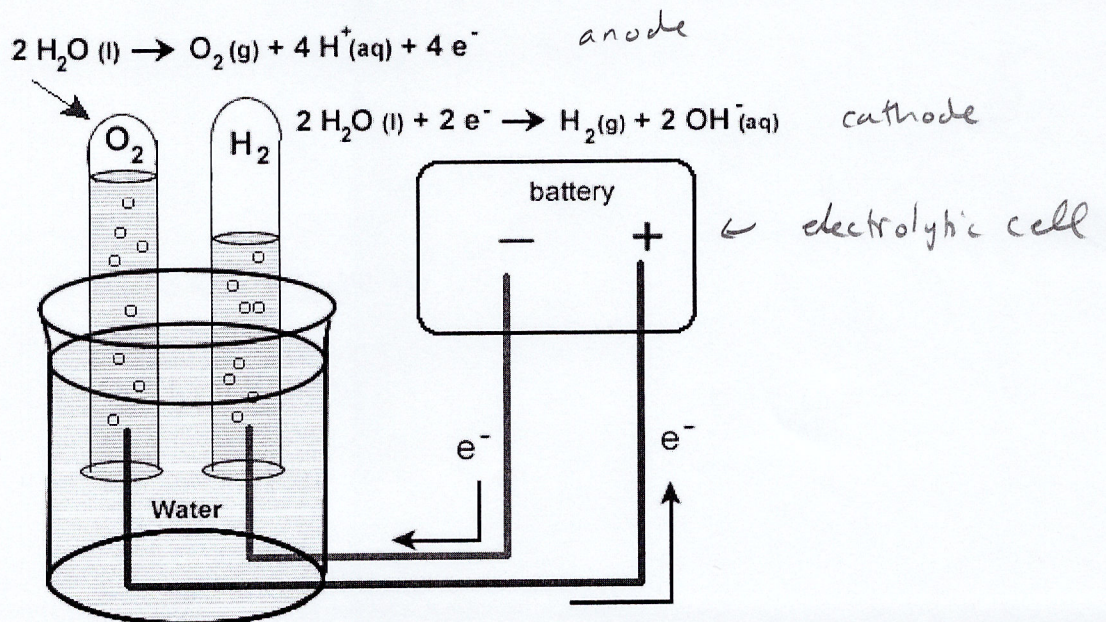 2 H₂O (l) → O₂ (g) + 4 H⁺(aq) + 4 e⁻ anode
2 H₂O (l) + 2 e⁻ → H₂(g) + 2 OH⁻(aq) cathode
O₂
H₂
battery
− +
← electrolytic cell
e⁻
e⁻
Water